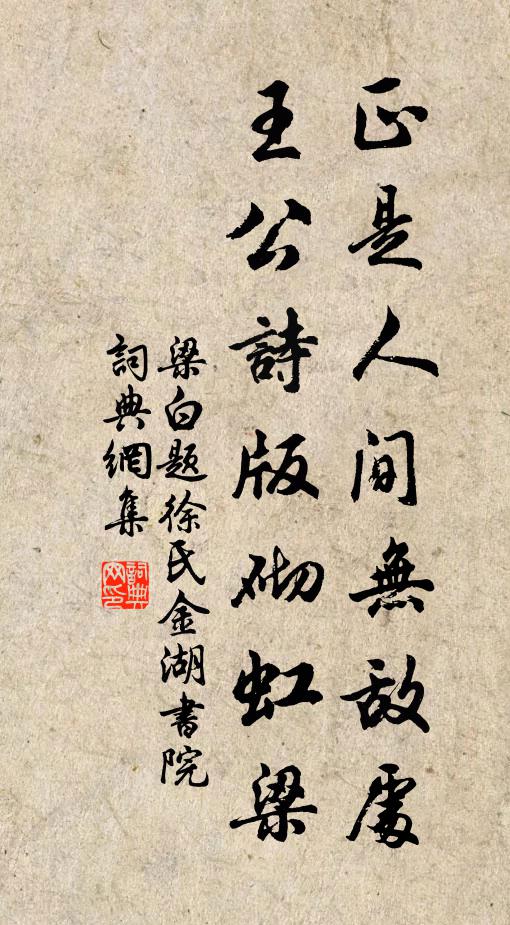 正是人间無敌處
王公詩版砌虹梁
梁白题徐氏金湖書院
詞典網集
詞典网印